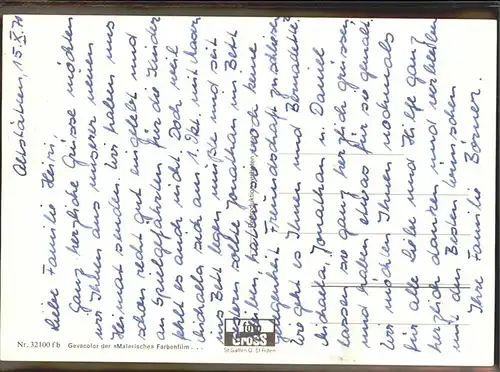 Altstätten, 15.X.71
Liebe Familie Heim!
Ganz herzliche Grüsse möchten
wir Ihnen aus unserer neuen
Heimat senden. Wir haben uns
schon recht gut eingelebt und
an Spielgefährten für die Kinder
fehlt es auch nicht. Doch weil
Michaela sich am 1. Okt. mit Masern
ins Bett legen mußte und seit
gestern sollte Jonathan im Bett
bleiben, hatten sie noch keine
Gelegenheit Freundschaft zu schliessen.
Wie geht es Ihnen und Bernadette?
Michaela, Jonathan u. Daniel
lassen sie ganz herzlich grüssen
und haben etwas für sie gemalt.
Wir möchten Ihnen nochmals
für alle Liebe und Hilfe ganz
herzlich danken, und verbleiben
mit den Besten Wünschen
Ihre Familie
Nr. 32100 fb Gevacolor der «Malerische» Farbenfilm . . .
foto
GROSS
St. Gallen